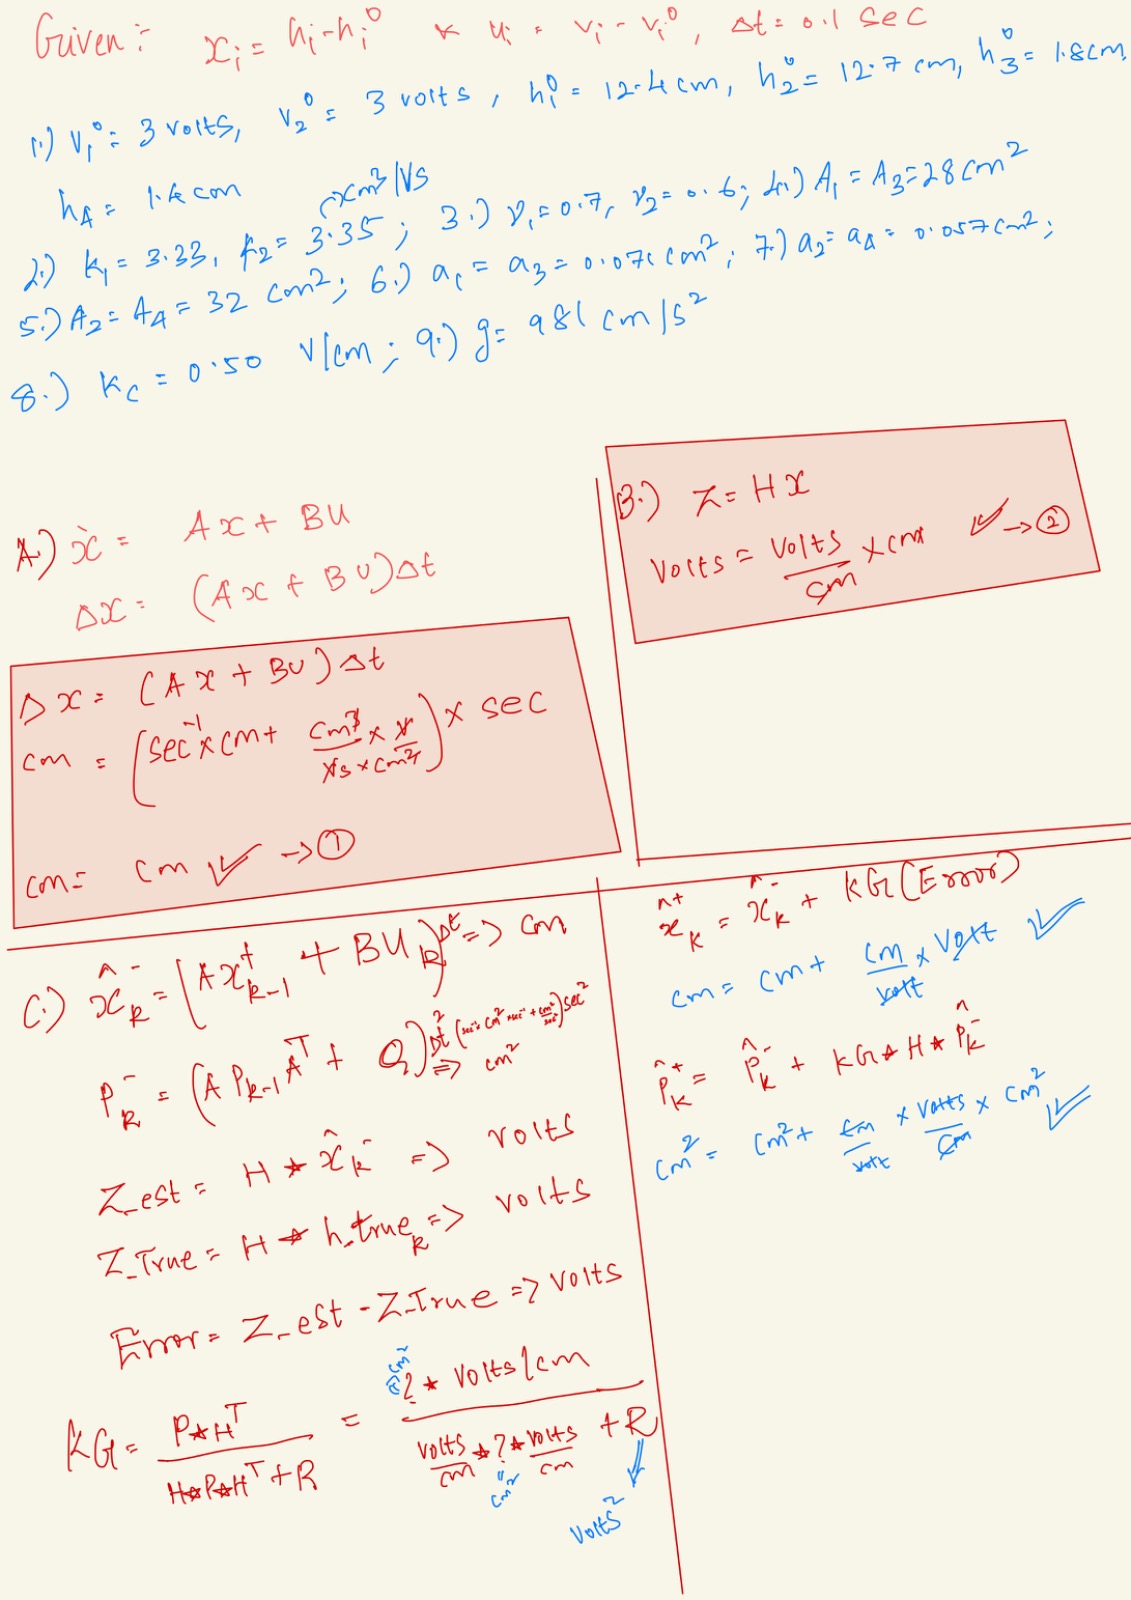 Given :- xᵢ = hᵢ - hᵢ⁰ & uᵢ = vᵢ - vᵢ⁰, Δt = 0.1 sec
1.) v₁⁰ = 3 volts, v₂⁰ = 3 volts, h₁⁰ = 12.4 cm, h₂⁰ = 12.7 cm, h₃⁰ = 1.8 cm,
h₄ = 1.4 cm
2.) k₁ = 3.33, k₂ = 3.35 → cm³/VS ; 3.) γ₁ = 0.7, γ₂ = 0.6; 4.) A₁ = A₃ = 28 cm²
5.) A₂ = A₄ = 32 cm²; 6.) a₁ = a₃ = 0.071 cm²; 7.) a₂ = a₄ = 0.057 cm²;
8.) Kc = 0.50 V/cm; 9.) g = 981 cm/s²
A.) ẋ = Ax + BU
Δx = (Ax + BU)Δt
Δx = (Ax + BU)Δt
cm = (sec⁻¹ x cm + cm³/(Vs x cm²) x V) x sec
cm = cm ✓ → ①
B.) Z = Hx
Volts = Volts/cm x cm ✓ → ②
C.) x̂ₖ⁻ = (Ax⁺ₖ₋₁ + BUₖ)Δt => cm
Pₖ⁻ = (A Pₖ₋₁ Aᵀ + Q)Δt² => cm²
Z_est = H * x̂ₖ⁻ => volts
Z_True = H * h_trueₖ => volts
Error = Z_est - Z_True => volts
KG = P*Hᵀ / (H*P*Hᵀ + R) = ? * volts/cm / (volts/cm * ? * volts/cm + R)
cm²
cm²
volts²
x̂ₖ⁺ = x̂ₖ⁻ + KG(Error)
cm = cm + cm/volt x Volt ✓
P̂ₖ⁺ = P̂ₖ⁻ + KG * H * P̂ₖ⁻
cm² = cm² + cm/volt x volts/cm x cm² ✓